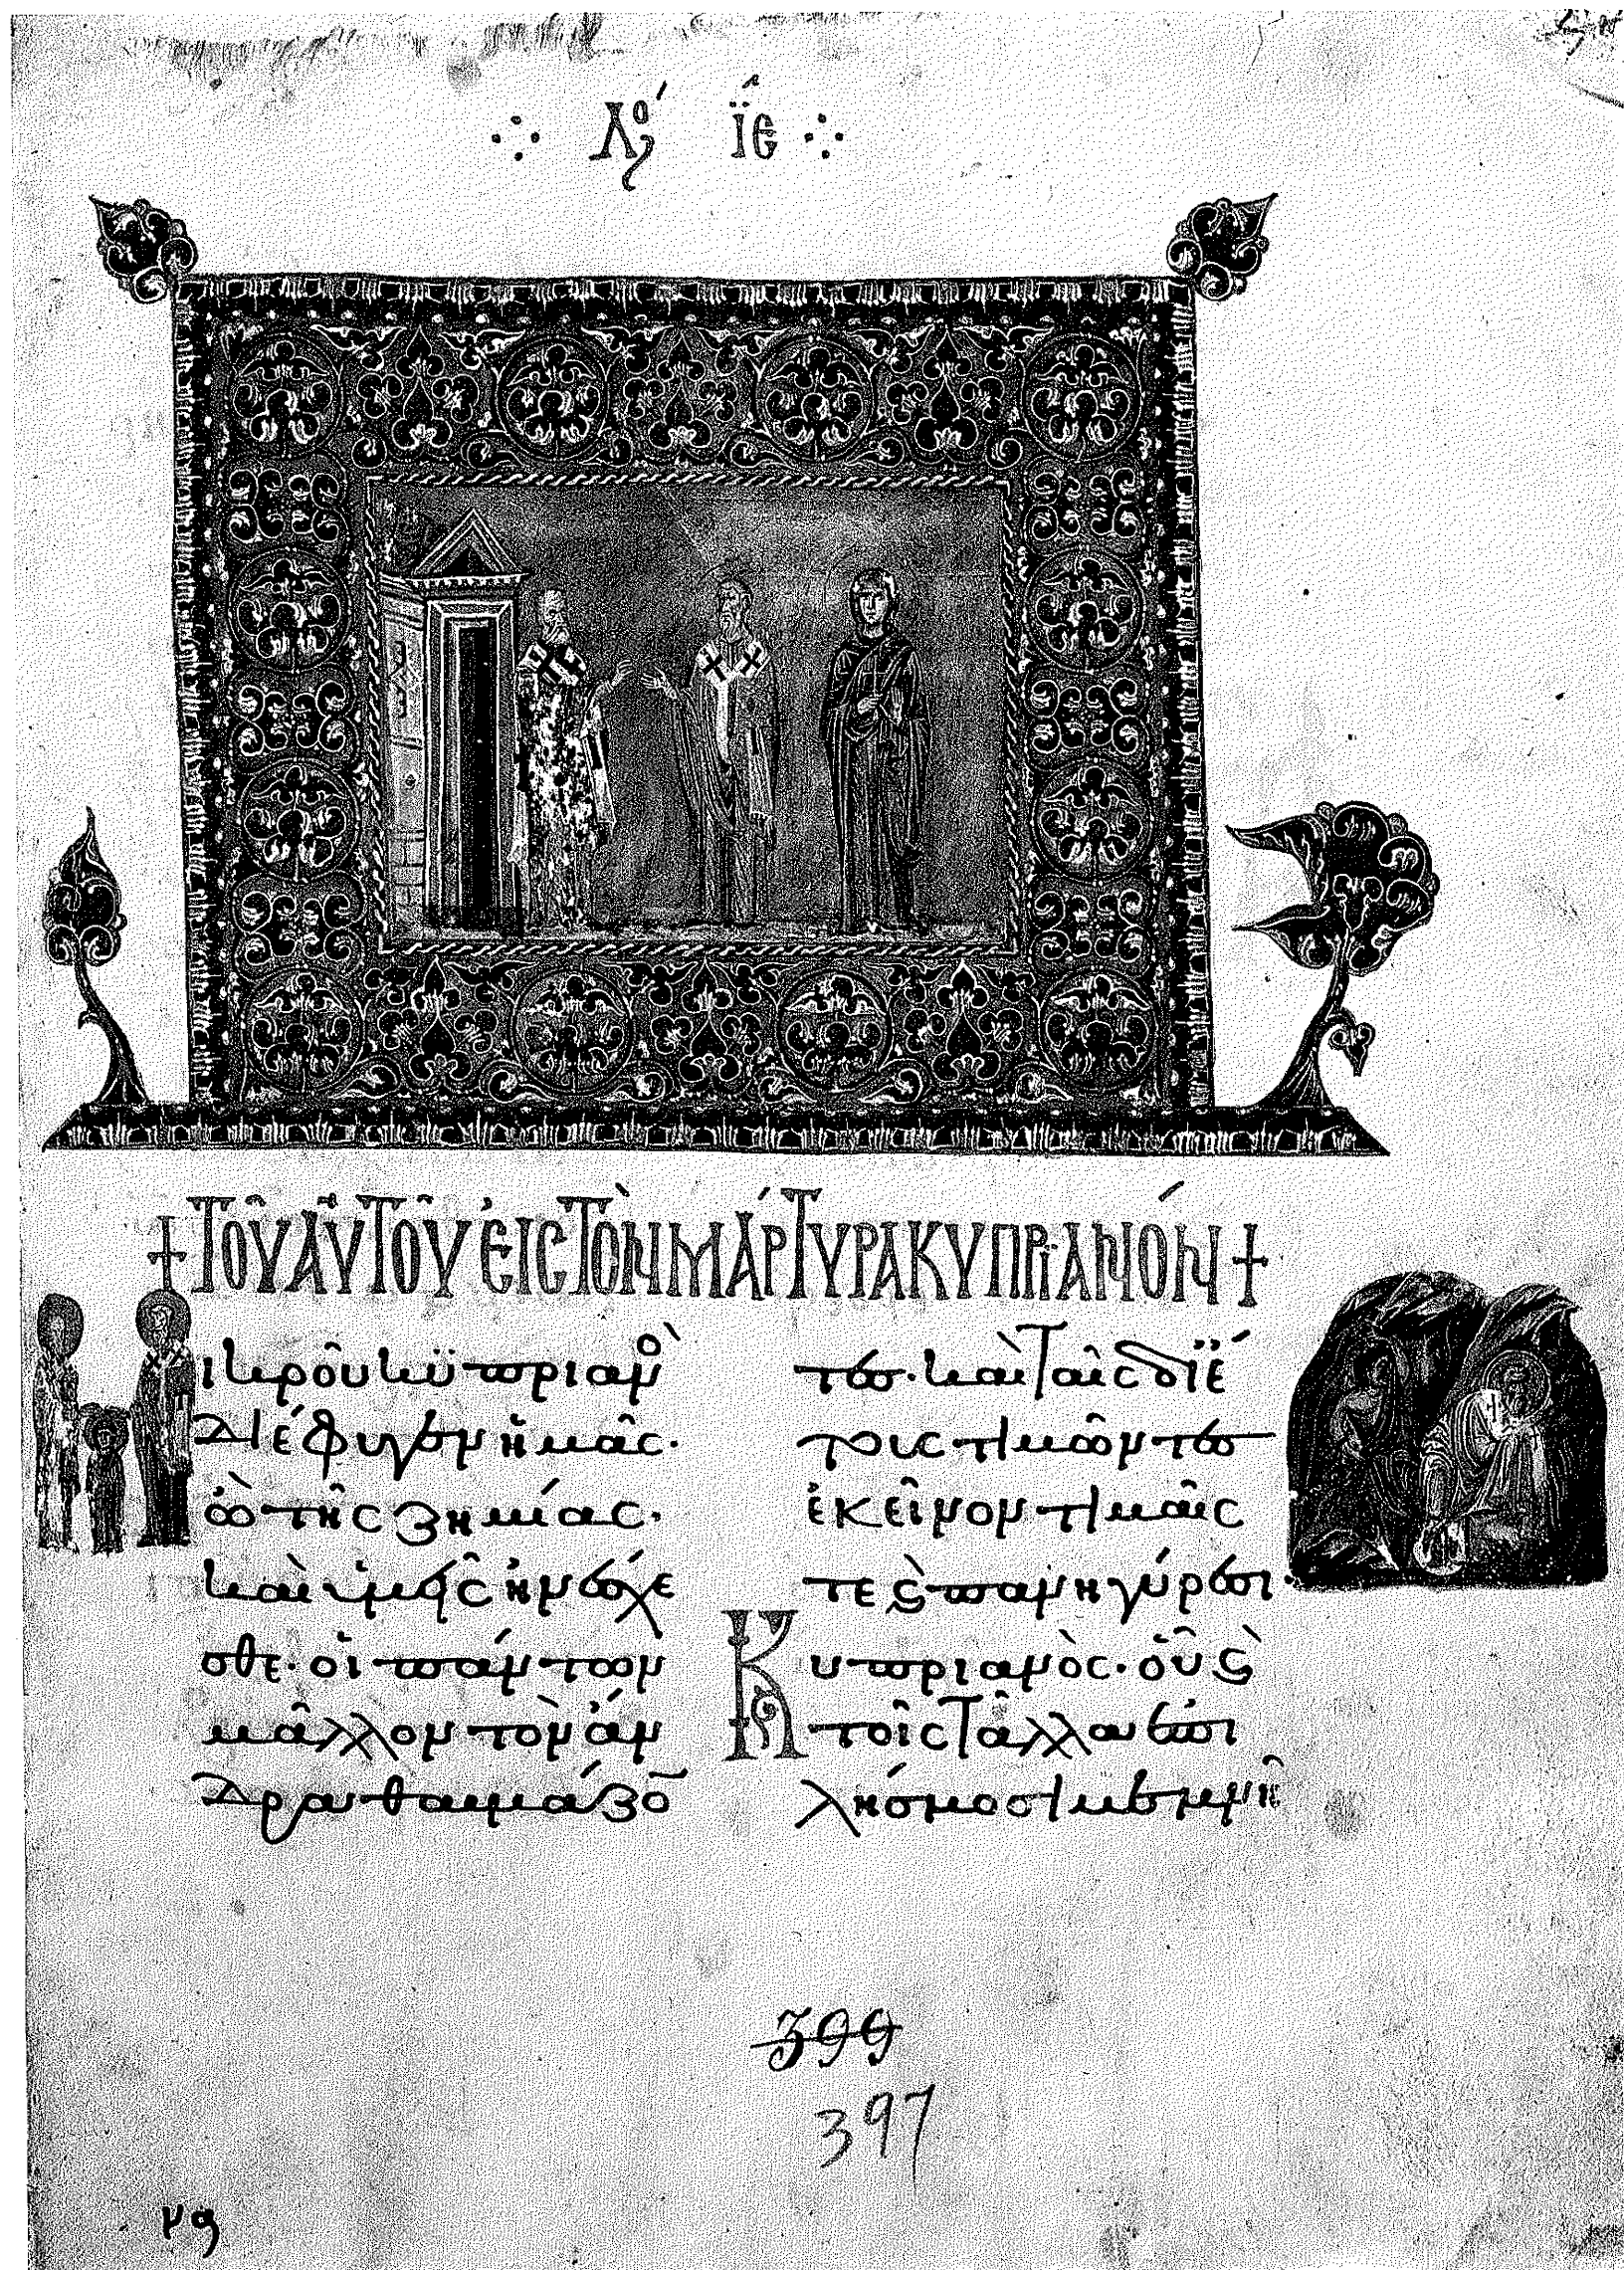 Λό ΙΕ
+ ΤΟΥ ΑΥΤΟΥ ΕΙΣ ΤΟΝ ΜΑΡΤΥΡΑ ΚΥΠΡΙΑΝΟΝ +
ικροῦ κϋπριανὸ
διέφυγεν ἡμᾶς·
ὢ τῆς ζημίας·
καὶ ὑμεῖς ἠνέσχε
σθε· οἱ πάντων
μᾶλλον τὸν ἄν
δρα θαυμάζο̅
τες· καὶ ταῖς δϊ ἔ
τους τιμῶντες
ἐκεῖνον τιμαῖς
τε ϗ πανηγύρεσι·
Κυπριανὸς· οὗ ϗ
τοῖς τἆλλα οὖσι
λήσμοσι μεμνῆ
399
397